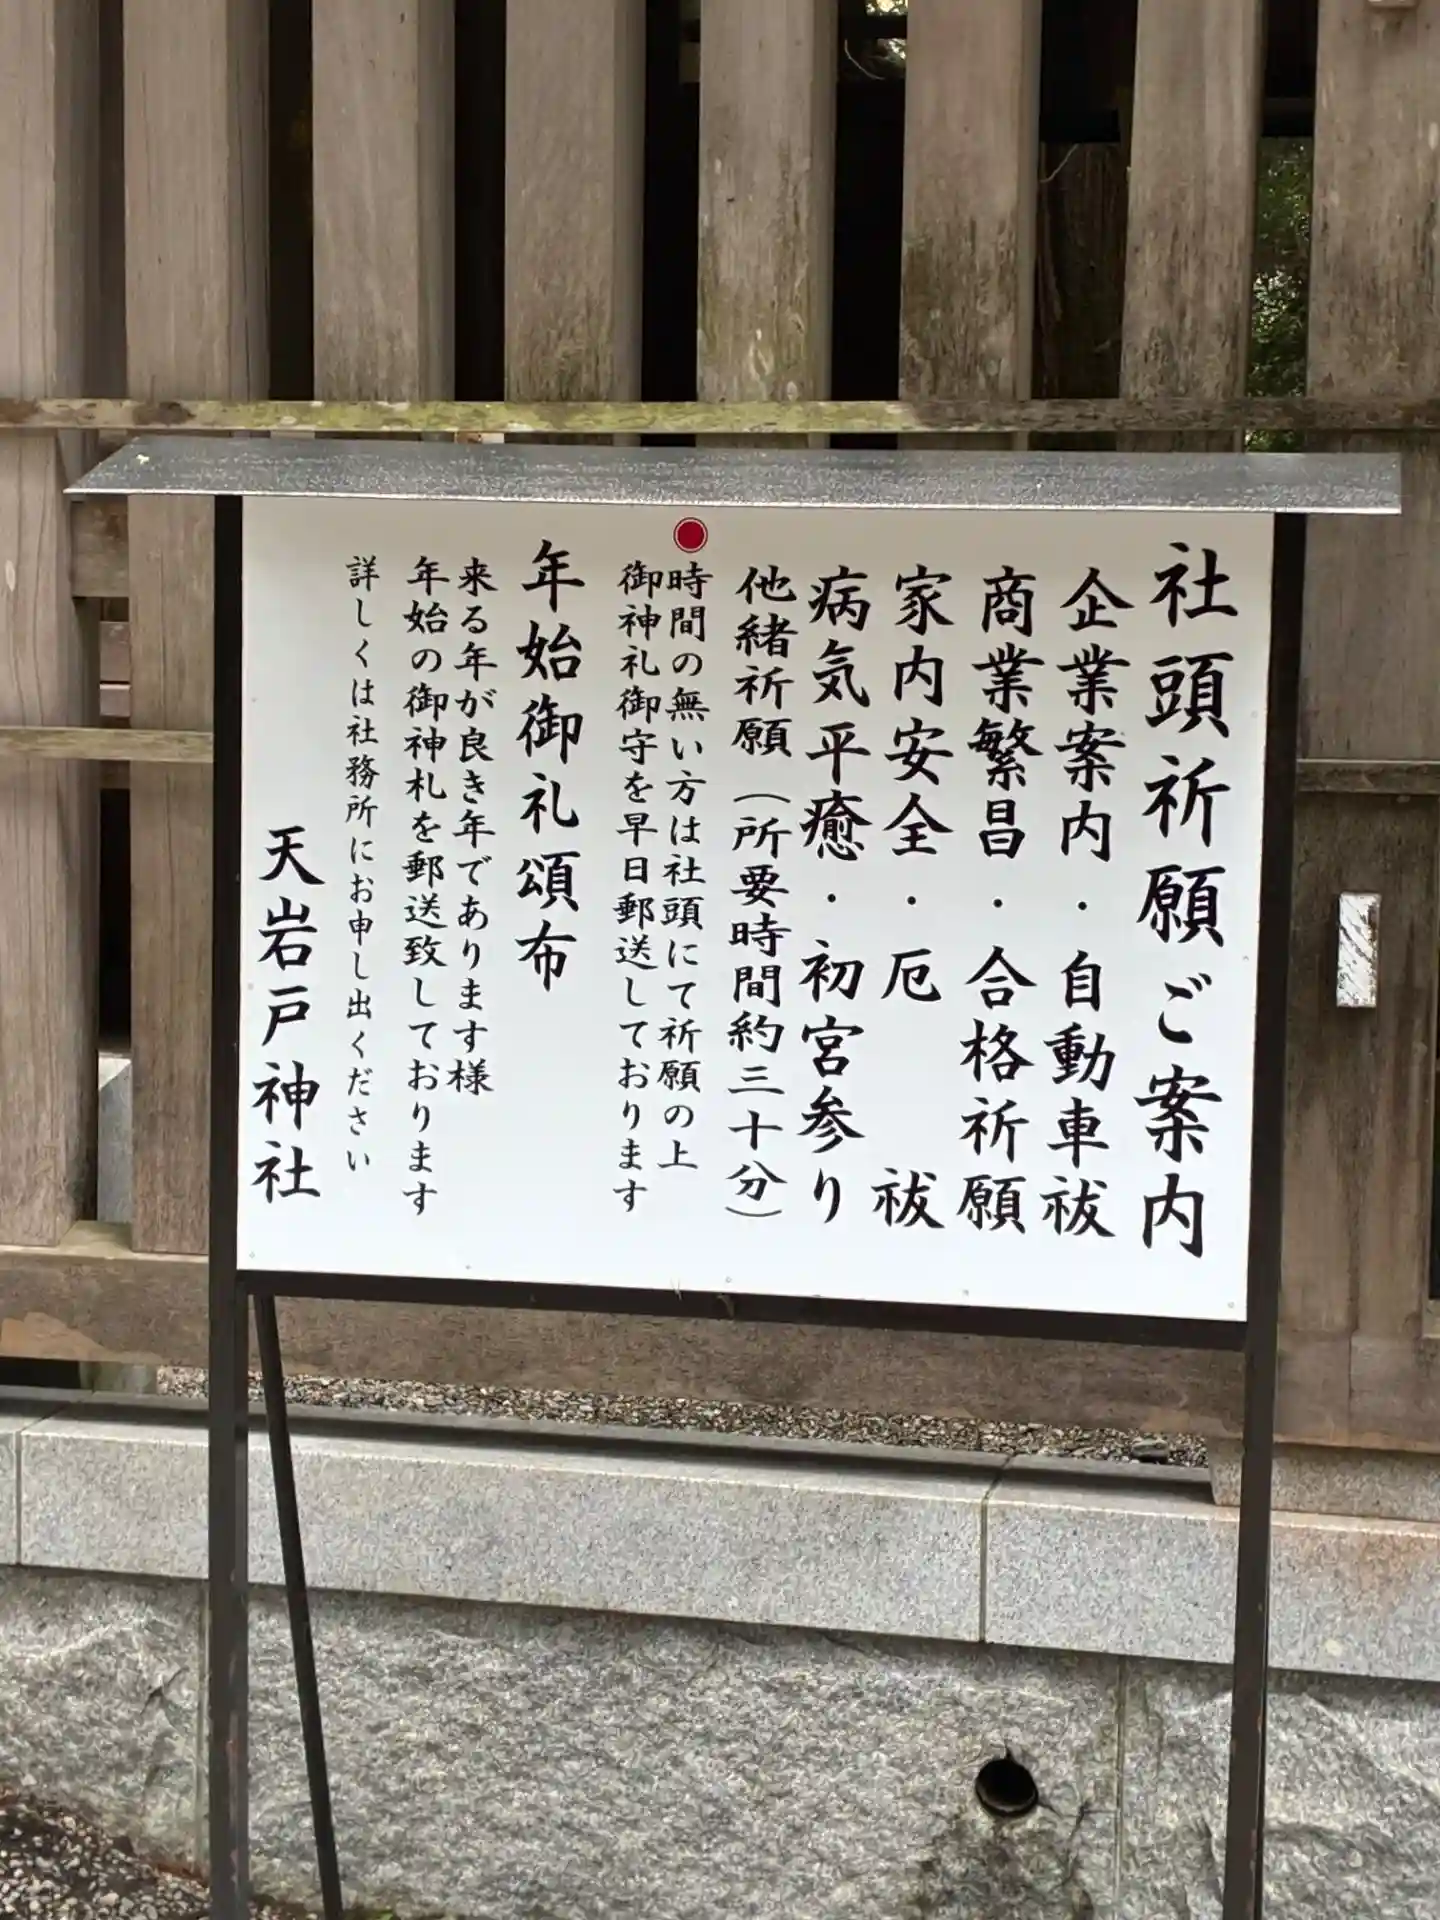 社頭祈願ご案内
企業案内・自動車祓
商業繁昌・合格祈願
家内安全・厄　祓
病気平癒・初宮参り
他緒祈願（所要時間約三十分）
時間の無い方は社頭にて祈願の上
御神礼御守を早日郵送しております
年始御礼頒布
来る年が良き年であります様
年始の御神札を郵送致しております
詳しくは社務所にお申し出ください
天岩戸神社